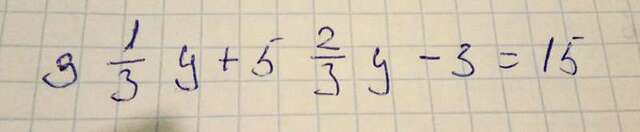 9 1/3 y + 5 2/3 y - 3 = 15